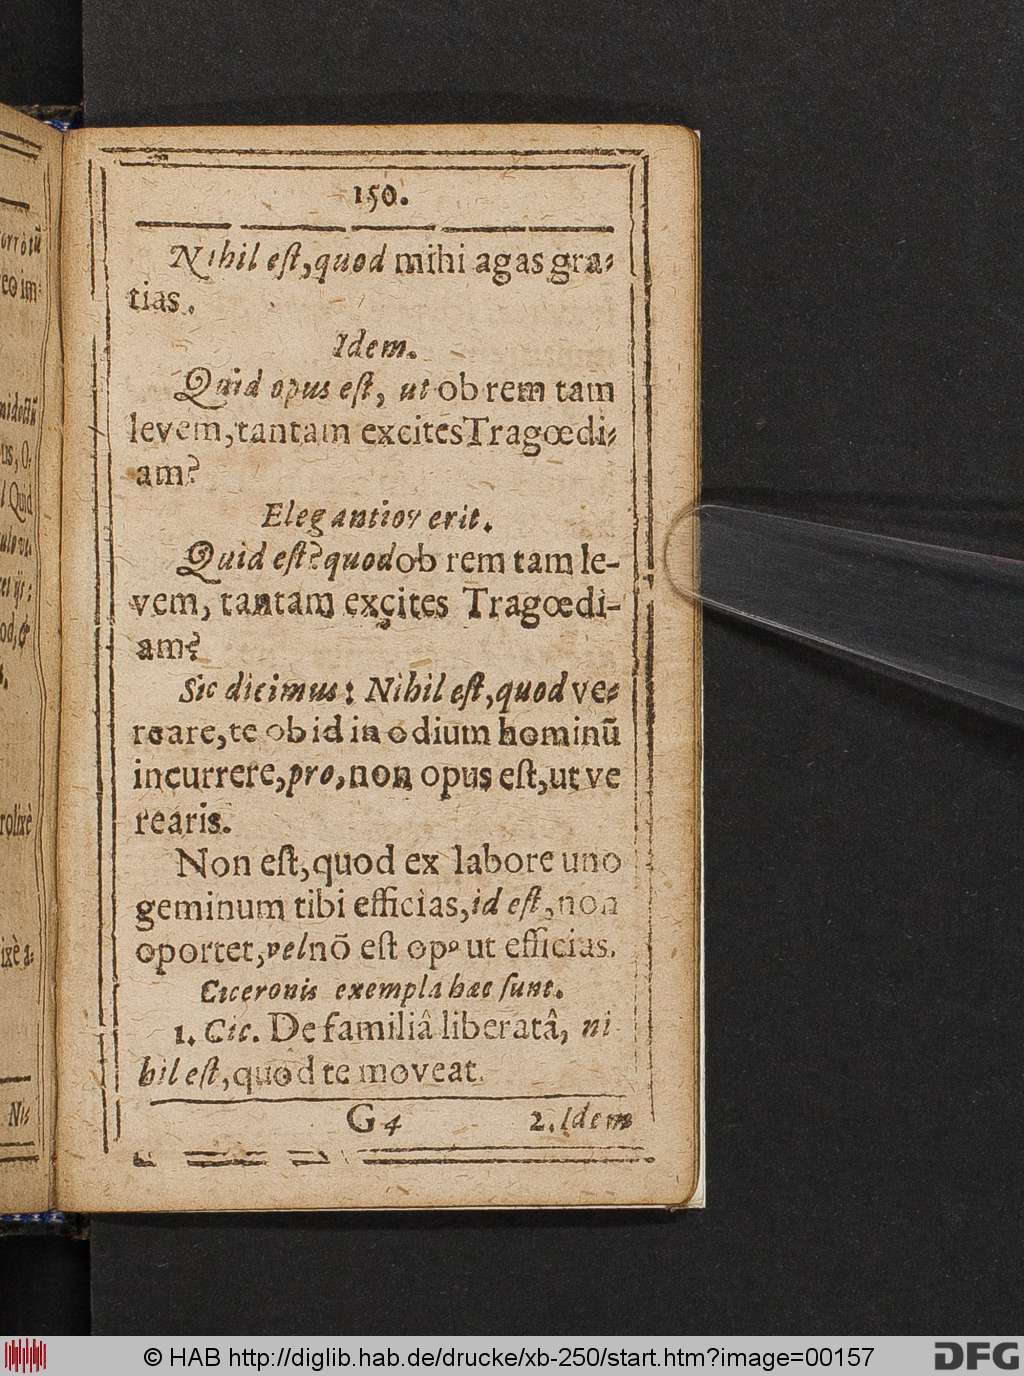 150.
Nihil est, quod mihi agas gra-
tias.
Idem.
Quid opus est, ut ob rem tam
levem, tantam excites Tragœdi-
am?
Elegantior erit.
Quid est? quod ob rem tam le-
vem, tantam excites Tragœdi-
am?
Sic dicimus: Nihil est, quod ve-
reare, te ob id in odium hominū
incurrere, pro, non opus est, ut ve
rearis.
Non est, quod ex labore uno
geminum tibi efficias, id est, non
oportet, vel nō est opꝰ ut efficias.
Ciceronis exempla hæc sunt.
1. Cic. De familiâ liberatâ, ni
hil est, quod te moveat.
G 4 2. Idem
© HAB http://diglib.hab.de/drucke/xb-250/start.htm?image=00157
DFG